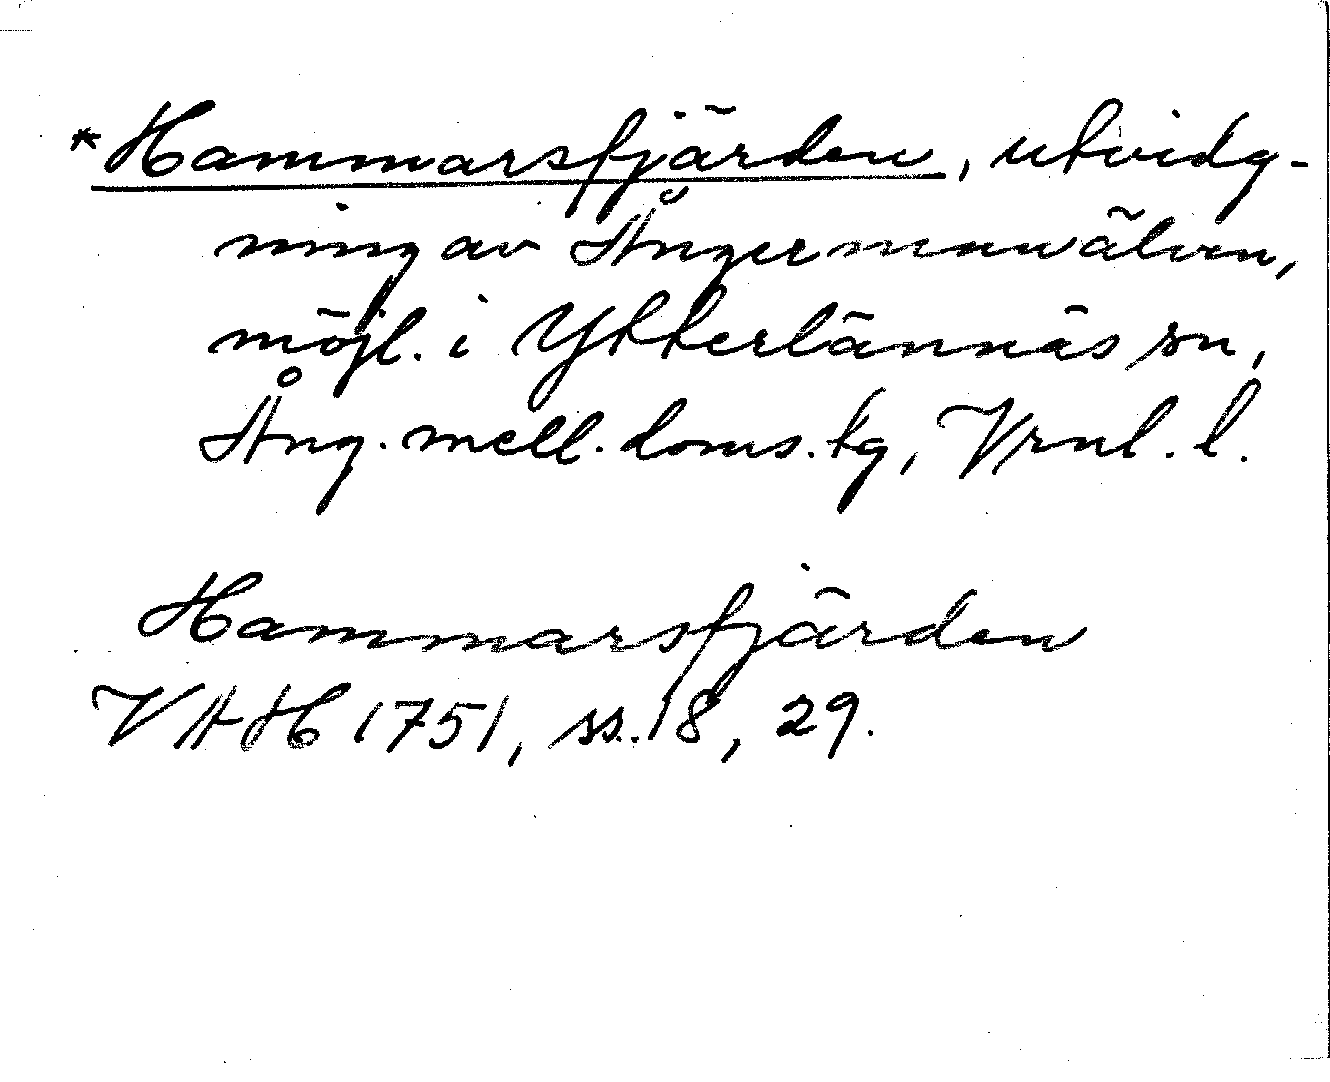 *Hammarsfjärden, utvidg-
ning av Ångermanälven,
möjl. i Ytterlännäs sn,
Ång. mell. doms. tg, Vrnl. l.
Hammarsfjärden
VAH 1751, ss. 18, 29.